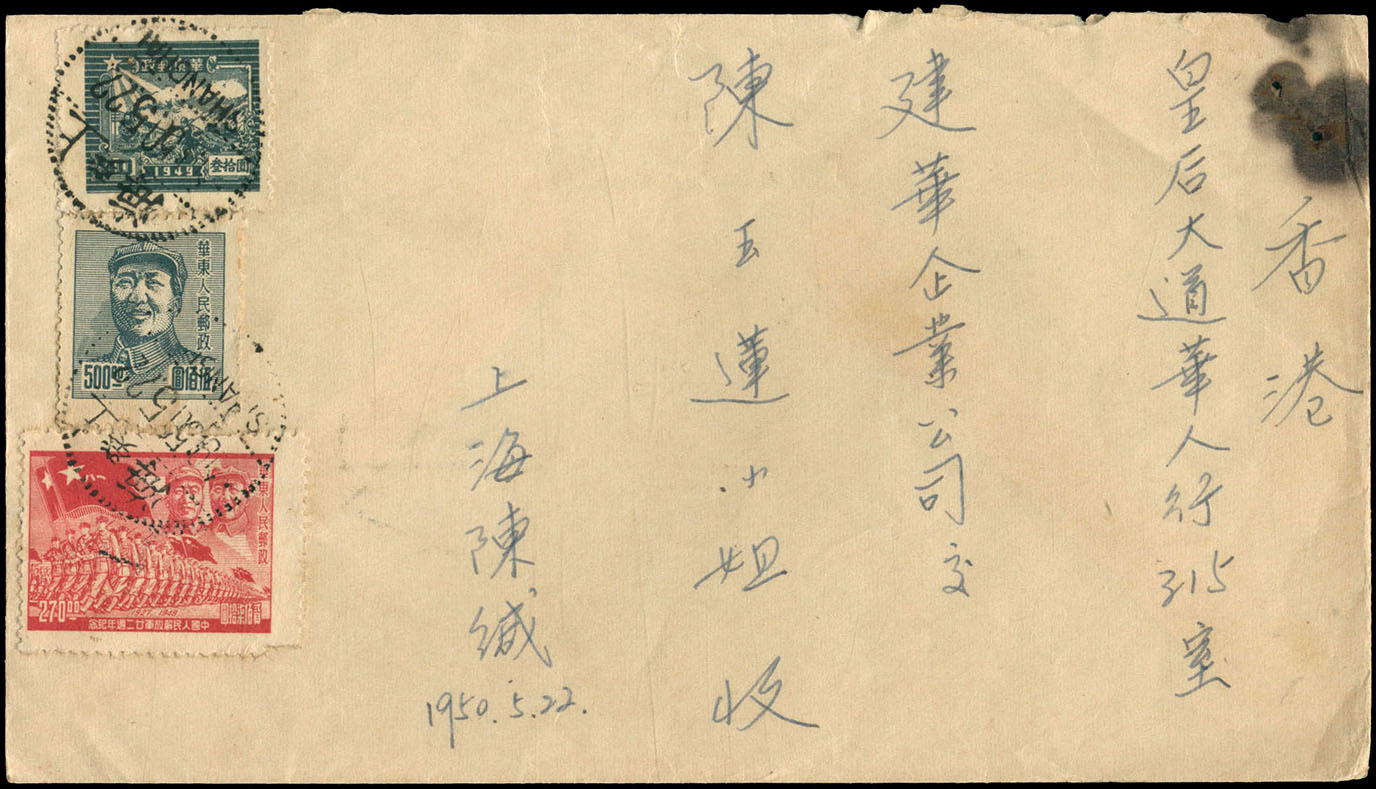 香港
皇后大道華人行315室
建華企業公司交
陳玉蓮小姐收
上海陳緘
1950.5.22.
華東郵政
1949
叁拾圓
上海
SHANGHAI
華東人民郵政
500.00
圓佰伍
上海
華東人民郵政
270.00
1927-1949
圓拾柒佰貳
念紀年週二廿軍放解民人國中